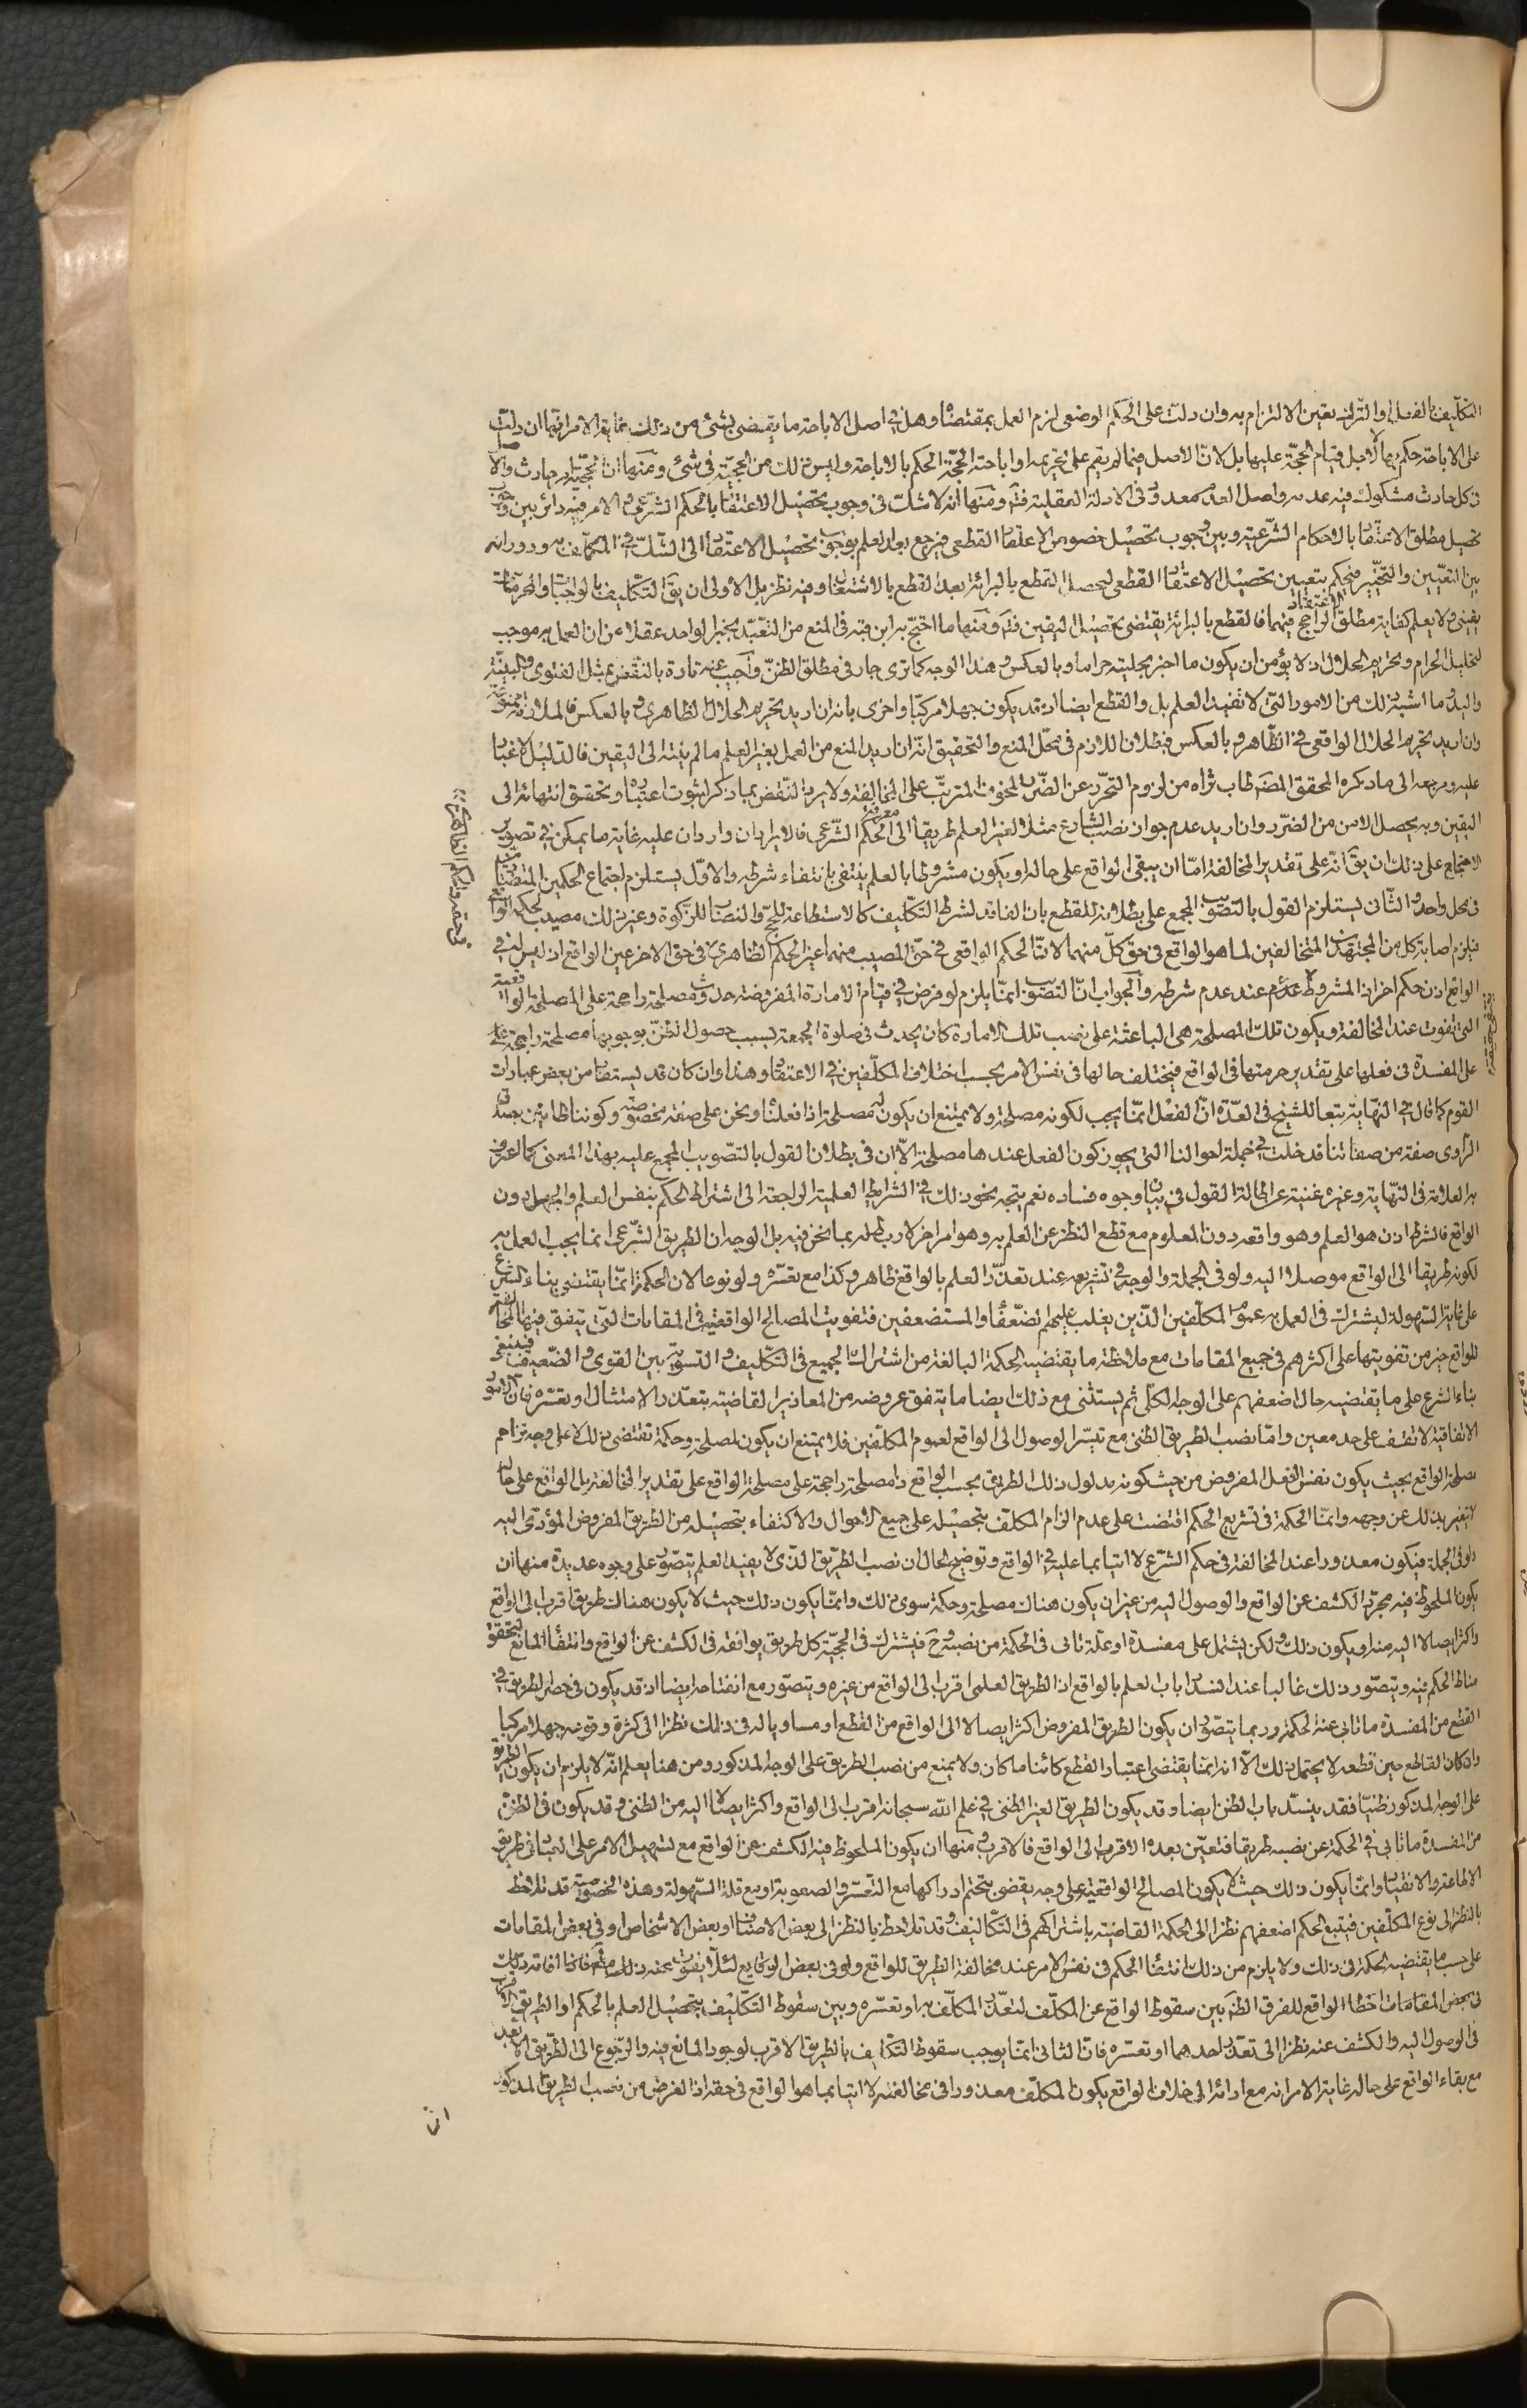 التكليف بالفعل او الترك تعين الالتزام به وان دلت على الحكم الوضعى لزم العمل بمقتضاه وهل فى اصل الاباحة ما يقتضى بشئ من ذلك غاية الامر انها ان دلت
على الاباحة حكم بها لا لاجل قيام الحجة عليها بل لان الاصل فيما لم يقم على تحريمه او اباحته الحجة الحكم بالاباحة وليس ذلك من الحجية فى شئ ومنها ان الحجية امر حادث والاصل
فى كل حادث مشكوك فيه عدمه واصل العدم معدود فى الادلة العقلية فتم ومنها انه لا شك فى وجوب تحصيل الاعتقاد بالحكم الشرعى والامر فيه دائر بين وجوب
تحصيل مطلق الاعتقاد بالاحكام الشرعية وبين وجوب تحصيل خصوص الاعتقاد القطعى فيرجع بعد العلم بوجوب تحصيل الاعتقاد الى الشك فى المكلف به ودورانه
بين التعيين والتخيير فيحكم بتعيين تحصيل الاعتقاد القطعى ليحصل القطع بالبرائة بعد القطع بالاشتغال وفيه نظر بل الاولى ان يق التكليف بالواجبات والمحرمات
يقينى ولا يعلم كفاية مطلق الاعتقاد الراجح فيهما فالقطع بالبرائة يقتضى تحصيل اليقين فتم ومنها ما احتج به ابن قبة فى المنع من التعبد بخبر الواحد عقلا من ان العمل به موجب
لتحليل الحرام وتحريم الحلال اذ لا يؤمن ان يكون ما اخبر بحليته حراما وبالعكس وهذا الوجه كما ترى جار فى مطلق الظن واجيب عنه تارة بالنقض بمثل الفتوى والبينة
واليد وما اشبه ذلك من الامور التى لا تفيد العلم بل والقطع ايضا اذ قد يكون جهلا مركبا واخرى بانه ان اريد تحريم الحلال الظاهرى وبالعكس فالملازمة ممنوعة
وان اريد تحريم الحلال الواقعى فى الظاهر وبالعكس فبطلان اللازم فى محل المنع والتحقيق انه ان اريد المنع من العمل بغير العلم ما لم ينته الى اليقين فالدليل لا غبار
عليه ومرجعه الى ما ذكره المحقق المضم طاب ثراه من لزوم التحرز عن الضرر المخوف المترتب على المخالفة ولا يرد النقض بما ذكر لثبوت اعتباره وتحقق انتهائه الى
اليقين وبه يحصل الامن من الضرر وان اريد عدم جواز نصب الشارع مثلا لغير العلم طريقا الى معرفة الحكم الشرعى فالايرادان واردان عليه غاية ما يمكن فى تصوير
الاحتجاج على ذلك ان يق انه على تقدير المخالفة اما ان يبقى الواقع على حاله او يكون مشروطا بالعلم ينتفى بانتفاء شرطه والاول يستلزم اجتماع الحكمين المتضادين
فى محل واحد والثانى يستلزم القول بالتصويب المجمع على بطلانه للقطع بان الفاقد لشرط التكليف كالاستطاعة للحج والنصاب للزكوة وغير ذلك مصيب لحكم الواقع
فيلزم اصابة كل من المجتهدين المتخالفين لما هو الواقع فى حق كل منهما لان الحكم الواقعى فى حق المصيب منهما عين الحكم الظاهرى فى حق الاخر عين الواقع اذ ليس له فى
الواقع اذن حكم اخر اذ المشروط عدم عند عدم شرطه والجواب ان التصويب انما يلزم لو فرض فى قيام الامارة المفروضة حدوث مصلحة راجحة على المصلحة الواقعية
التى تفوت عند المخالفة ويكون تلك المصلحة هى الباعثة على نصب تلك الامارة كان يحدث فى صلوة الجمعة بسبب حصول الظن بوجوبها مصلحة راجحة
على المفسدة فى فعلها على تقدير حرمتها فى الواقع فيختلف حالها فى نفس الامر بحسب اختلاف المكلفين فى الاعتقاد وهذا وان كان قد يستفاد من بعض عبارات
القوم كما قال فى النهاية تبعا للشيخ فى العدة ان الفعل انما يجب لكونه مصلحة ولا يمتنع ان يكون له مصلحة اذا فعلناه ونحن على صفة مخصوصة وكوننا ظانين بصدق
الراوى صفة من صفاتنا قد دخلت فى جملة احوالنا التى يجوز كون الفعل عندها مصلحة الا ان فى بطلان القول بالتصويب المجمع عليه بهذا المعنى كما اعترف
به العلامة فى النهاية وغيره غنية عن اطالة القول فى بيان وجوه فساده نعم يتجه نحو ذلك فى الشرايط العلمية الراجعة الى اشتراط الحكم بنفس العلم والجهل دون
الواقع فالشرط اذن هو العلم وهو واقعه دون المعلوم مع قطع النظر عن العلم به وهو امر اخر لا ربط له بما نحن فيه بل الوجه ان الطريق الشرعى انما يجب العمل به
لكونه طريقا الى الواقع موصلا اليه ولو فى الجملة والوجه فى تشريعه عند تعذر العلم بالواقع ظاهر وكذا مع تعسره ولو نوعا لان الحكمة انما يقتضى بناء الشرع
على غاية السهولة ليشترك فى العمل به عموم المكلفين الذين يغلب عليهم الضعفاء والمستضعفين فتفويت المصالح الواقعية فى المقامات التى يتفق فيها المخالفة
للواقع خير من تفويتها على اكثرهم فى جميع المقامات مع ملاحظة ما يقتضيه الحكمة البالغة من اشتراك الجميع فى التكليف والتسوية بين القوى والضعيف فينبغى
بناء الشرع على ما يقتضيه حال اضعفهم على الوجه الكلى ثم يستثنى مع ذلك ايضا ما يتفق عروضه من المعاذير القاضية بتعذر الامتثال او تعسره فان الامور
الاتفاقية لا تقف على حد معين واما نصب الطريق الظنى مع تيسر الوصول الى الواقع لعموم المكلفين فلا يمتنع ان يكون لمصلحة وحكمة تقتضى ذلك لا على وجه تزاحم
مصلحة الواقع بحيث يكون نفس الفعل المفروض من حيث كونه مدلول ذلك الطريق بحسب الواقع ذا مصلحة راجحة على مصلحة الواقع على تقدير المخالفة بل الواقع على حاله
لا يتغير بذلك عن وجهه وانما الحكمة فى تشريع الحكم اقتضت على عدم الزام المكلف بتحصيله على جميع الاحوال والاكتفاء بتحصيله من الطريق المفروض المؤدى اليه
ولو فى الجملة فيكون معذورا عند المخالفة فى حكم الشرع لا اتيا بما عليه فى الواقع وتوضيح الحال ان نصب الطريق الذى لا يفيد العلم يتصور على وجوه عديدة منها ان
يكون الملحوظ فيه مجرد الكشف عن الواقع والوصول اليه من غير ان يكون هناك مصلحة وحكمة سوى ذلك وانما يكون ذلك حيث لا يكون هناك طريق اقرب الى الواقع
واكثر ايصالا اليه منه او يكون ذلك ولكن يشتمل على مفسدة او علة تابى فى الحكمة من نصبه وح فيشترك فى الحجية كل طريق يوافقه فى الكشف عن الواقع وانتفاء المانع لتحقق
مناط الحكم فيه ويتصور ذلك غالبا عند انسداد باب العلم بالواقع اذ الطريق العلمى اقرب الى الواقع من غيره ويتصور مع انفتاحه ايضا اذ قد يكون فى حصر الطريق فى
القطع من المفسدة ما تابى عنه الحكمة وربما يتصور ان يكون الطريق المفروض اكثر ايصالا الى الواقع من القطع او مساويا له فى ذلك نظرا الى كثرة وقوعه جهلا مركبا
وان كان القاطع حين قطعه لا يحتمل ذلك الا انه انما يقتضى اعتبار القطع كائنا ما كان ولا يمنع من نصب الطريق على الوجه المذكور ومن هنا يعلم انه لا يلزم ان يكون الطريق
على الوجه المذكور ظنيا فقد ينسد باب الظن ايضا وقد يكون الطريق الغير الظنى فى علم الله سبحانه اقرب الى الواقع واكثر ايصالا اليه من الظنى وقد يكون فى الظن
من المفسدة ما تابى فى الحكمة عن نصبه طريقا فتعين بعده الاقرب الى الواقع فالاقرب ومنها ان يكون الملحوظ فيه الكشف عن الواقع مع تسهيل الامر على العباد فى طريق
الاطاعة والانقياد وانما يكون ذلك حيث لا يكون المصالح الواقعية على وجه يقضى بتحتم ادراكها مع التعسر والصعوبة او مع قلة السهولة وهذه الخصوصية قد تلاحظ
بالنظر الى نوع المكلفين فيتبع الحكم اضعفهم نظرا الى الحكمة القاضية باشتراكهم فى التكاليف وقد تلاحظ بالنظر الى بعض الاصناف او بعض الاشخاص او فى بعض المقامات
على حسب ما يقتضيه الحكمة فى ذلك ولا يلزم من ذلك انتفاء الحكم فى نفس الامر عند مخالفة الطريق للواقع ولو فى بعض الوقايع لئلا يفوت بحقه ذلك فاذا افاته ذلك
فى بعض المقامات اخطا الواقع للفرق الظاهر بين سقوط الواقع عن المكلف لتعذر المكلف به او تعسره وبين سقوط التكليف بتحصيل العلم بالحكم او الطريق الاقرب
فى الوصول اليه والكشف عنه نظرا الى تعذر احدهما او تعسره فان الثانى انما يوجب سقوط التكليف بالطريق الاقرب لوجود المانع فيه والرجوع الى الطريق الابعد
مع بقاء الواقع على حاله غاية الامر انه مع ادائه الى خلاف الواقع يكون المكلف معذورا فى مخالفته لا اتيا بما هو الواقع فى حقه اذ الغرض من نصب الطريق المذكور